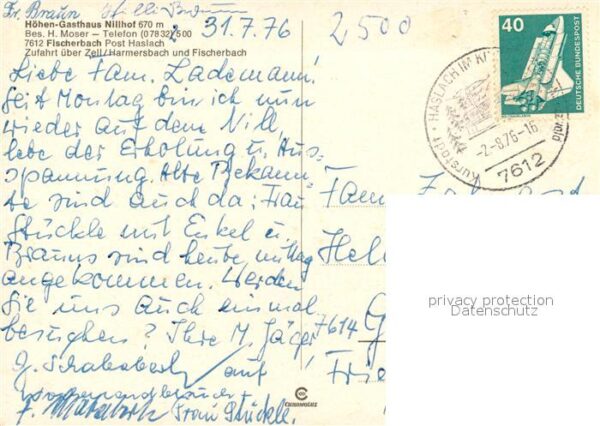 Fr. Braun Willi Braun
31.7.76
2500
Höhen-Gasthaus Nillhof 670 m
Bes. H. Moser – Telefon (07832) 500
7612 Fischerbach Post Haslach
Zufahrt über Zell/Harmersbach und Fischerbach
Liebe Fam. Lademann!
Seit Montag bin ich nun
wieder auf dem Nill,
lebe der Erholung u. Aus-
spannung. Alte Bekann-
te sind auch da: Frau
Stückle mit Enkel u.
Brauns sind heute mittag
angekommen. Werden
Sie uns auch einmal
besuchen? Ihre M. Jäger
auf
Frau Stückle.
40
DEUTSCHE BUNDESPOST
HASLACH IM KI
-2.-8.76-16
7612
Kurstadt
Fam.
Hel
7614 G
Frie
privacy protection
Datenschutz
CEKADE